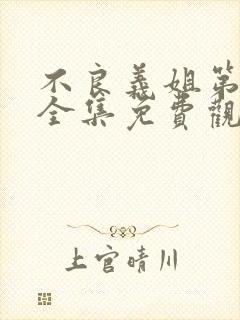 不良義姐第
全集免費觀
上官晴川